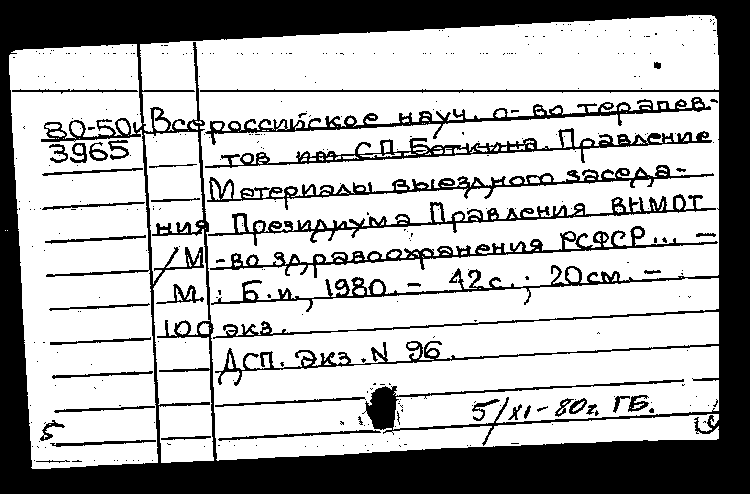 80-50к Всероссийское науч. о-во терапев-
3965 тов им. С.П. Боткина. Правление
Материалы выездного заседа-
ния Президиума Правления ВНМОТ
/ М-во здравоохранения РСФСР... -
М.: Б.и., 1980. - 42 с.; 20 см. -
100 экз.
ДСП. Экз. N 96.
5/XI-80г. ГБ.
5